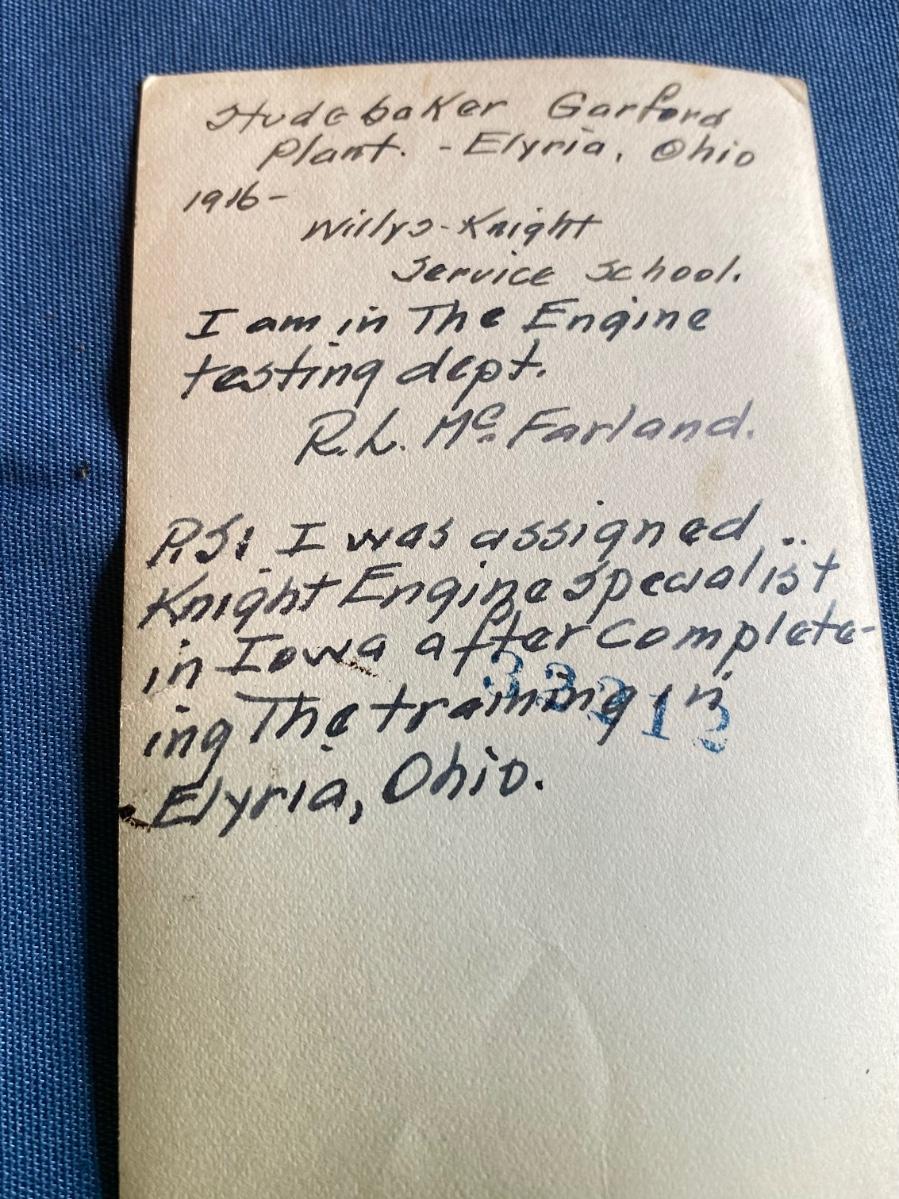 Studebaker Garford
Plant. - Elyria, Ohio
1916-
Willys-Knight
Service School.
I am in The Engine
testing dept.
R.L. McFarland.
P.S: I was assigned
Knight Engine Specialist
in Iowa after complete-
ing The training in
Elyria, Ohio.